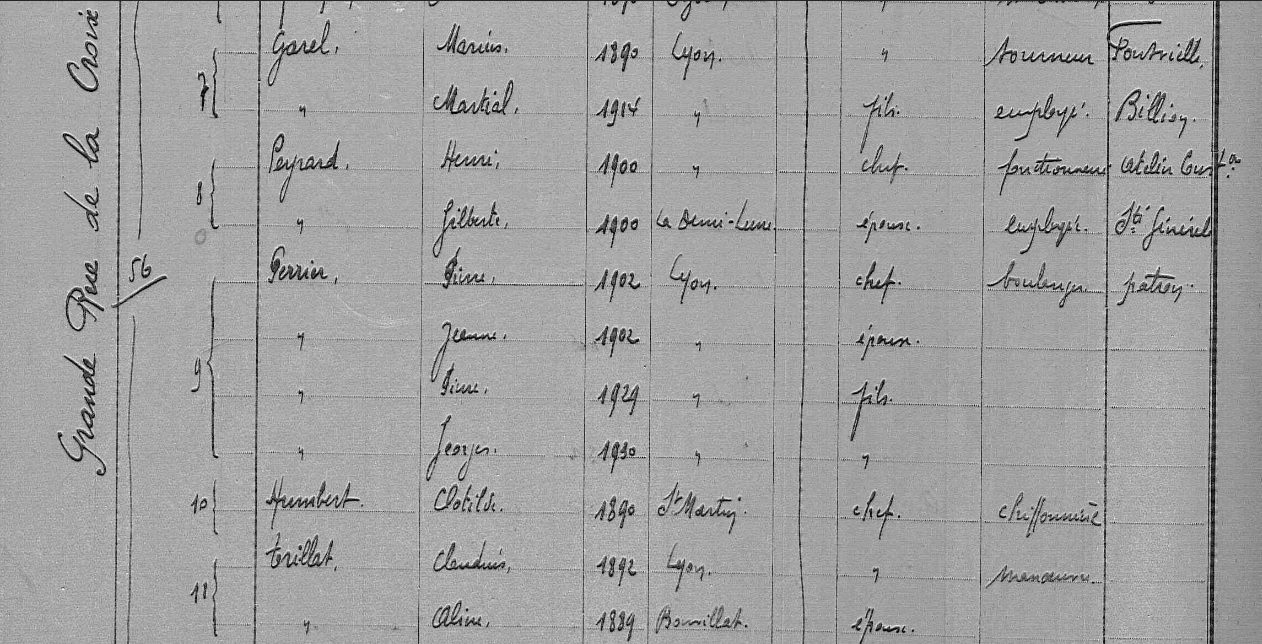 Grande Rue de la Croix
56
7 Garel, Marius. 1890 Lyon. " tourneur
" Martial. 1914 " fils. employé. Billion.
8 Peyrard. Henri, 1900 " chef. atelier
" Gilberte, 1900 La Demi-Lune. épouse. employée. Sté Général
9 Perrier, Pierre, 1902 Lyon. chef. boulanger patron.
" Jeanne. 1902 " épouse.
" Pierre. 1929 " fils.
" Georges. 1930 " "
10 Humbert. Clotilde. 1890 St Martin. chef. chiffonnière
11 Trillat, Claudius, 1892 Lyon. " manœuvre.
" Aline. 1889 épouse.